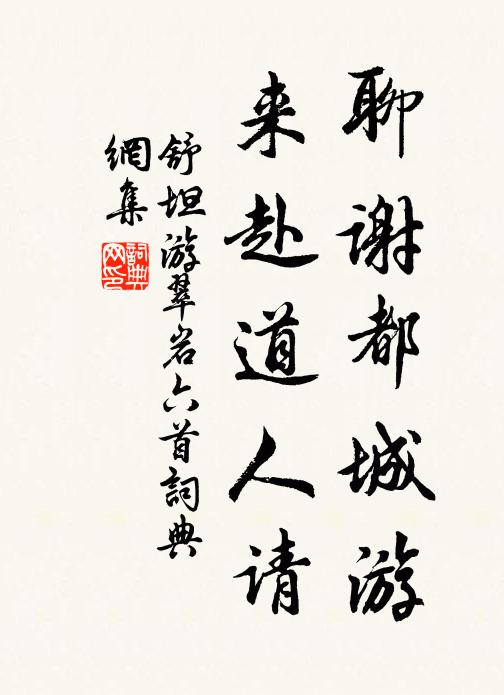 聊谢都城游
来赴道人请
舒坦游翠岩六首詞典
網集
詞典
网印